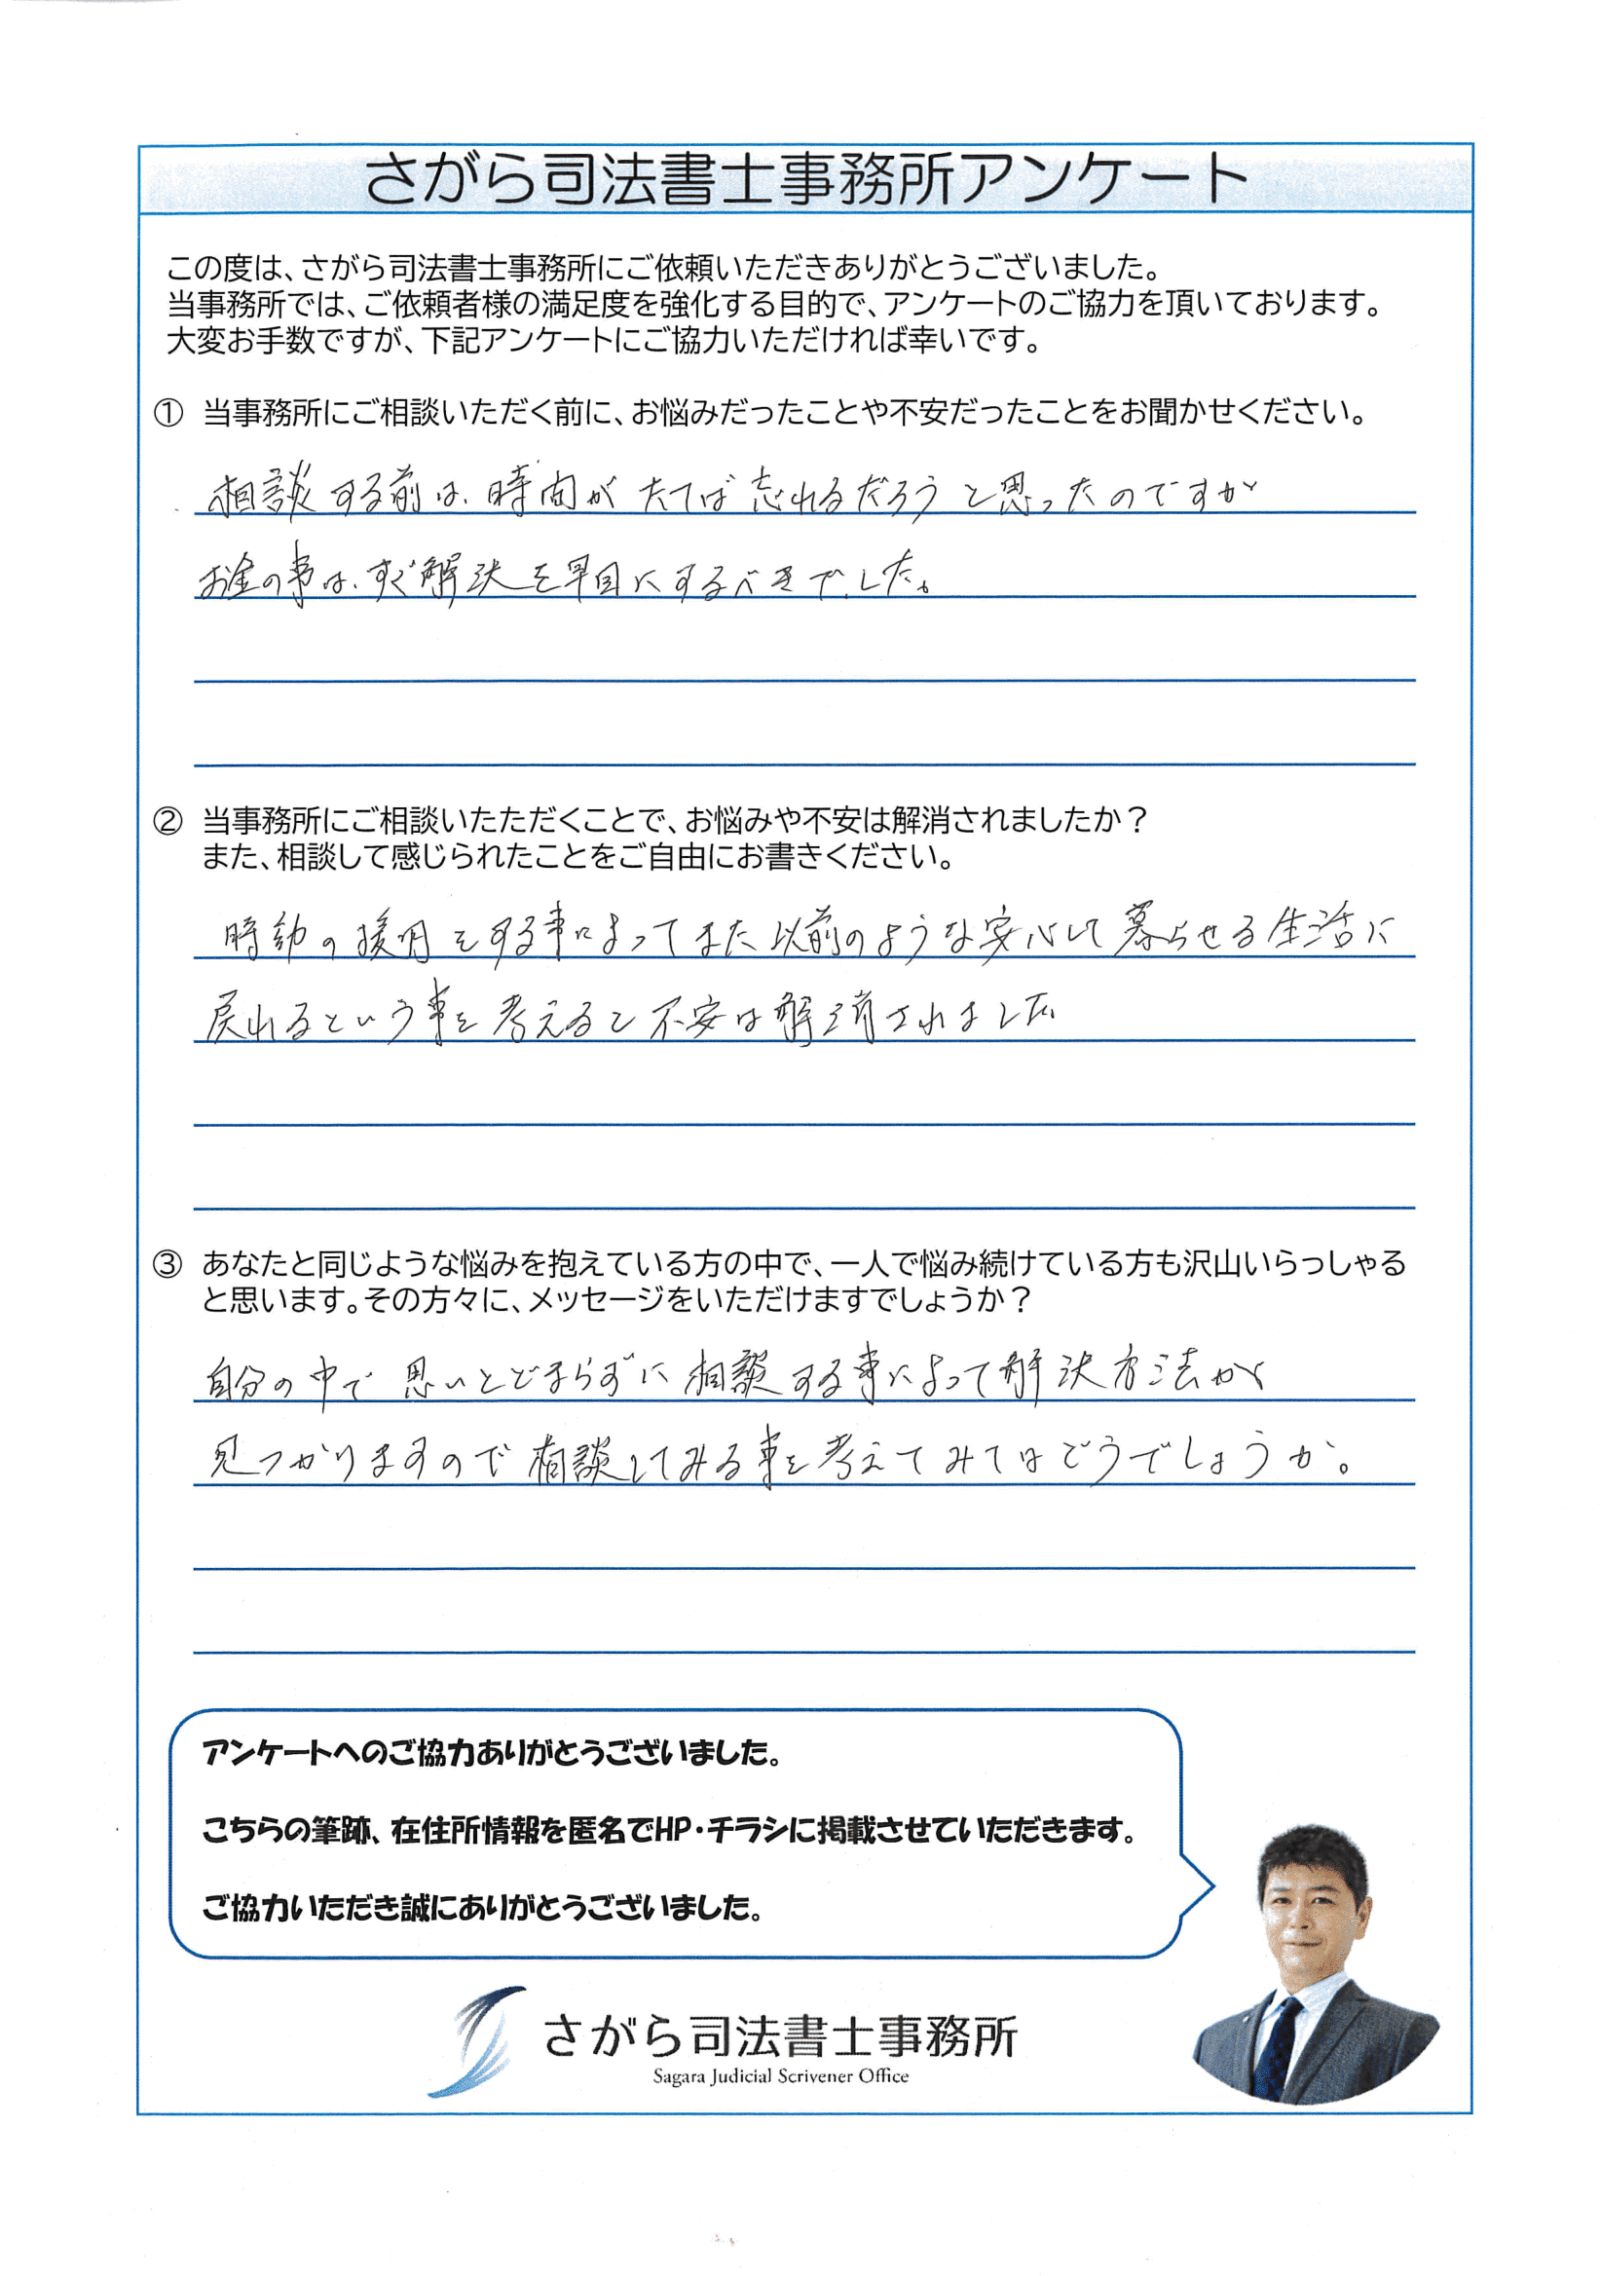 さがら司法書士事務所アンケート
この度は、さがら司法書士事務所にご依頼いただきありがとうございました。
当事務所では、ご依頼者様の満足度を強化する目的で、アンケートのご協力を頂いております。
大変お手数ですが、下記アンケートにご協力いただければ幸いです。
① 当事務所にご相談いただく前に、お悩みだったことや不安だったことをお聞かせください。
相談する前は、時間がたてば忘れるだろうと思ったのですが
お金の事は、すぐ解決を早目にするべきでした。
② 当事務所にご相談いたただくことで、お悩みや不安は解消されましたか？
また、相談して感じられたことをご自由にお書きください。
時効の援用をする事によってまた以前のような安心して暮らせる生活に
戻れるという事を考えると不安は解消されました。
③ あなたと同じような悩みを抱えている方の中で、一人で悩み続けている方も沢山いらっしゃる
と思います。その方々に、メッセージをいただけますでしょうか？
自分の中で思いとどまらずに相談する事によって解決方法が
見つかりますので相談してみる事を考えてみてはどうでしょうか。
アンケートへのご協力ありがとうございました。
こちらの筆跡、在住所情報を匿名でHP・チラシに掲載させていただきます。
ご協力いただき誠にありがとうございました。
さがら司法書士事務所
Sagara Judicial Scrivener Office